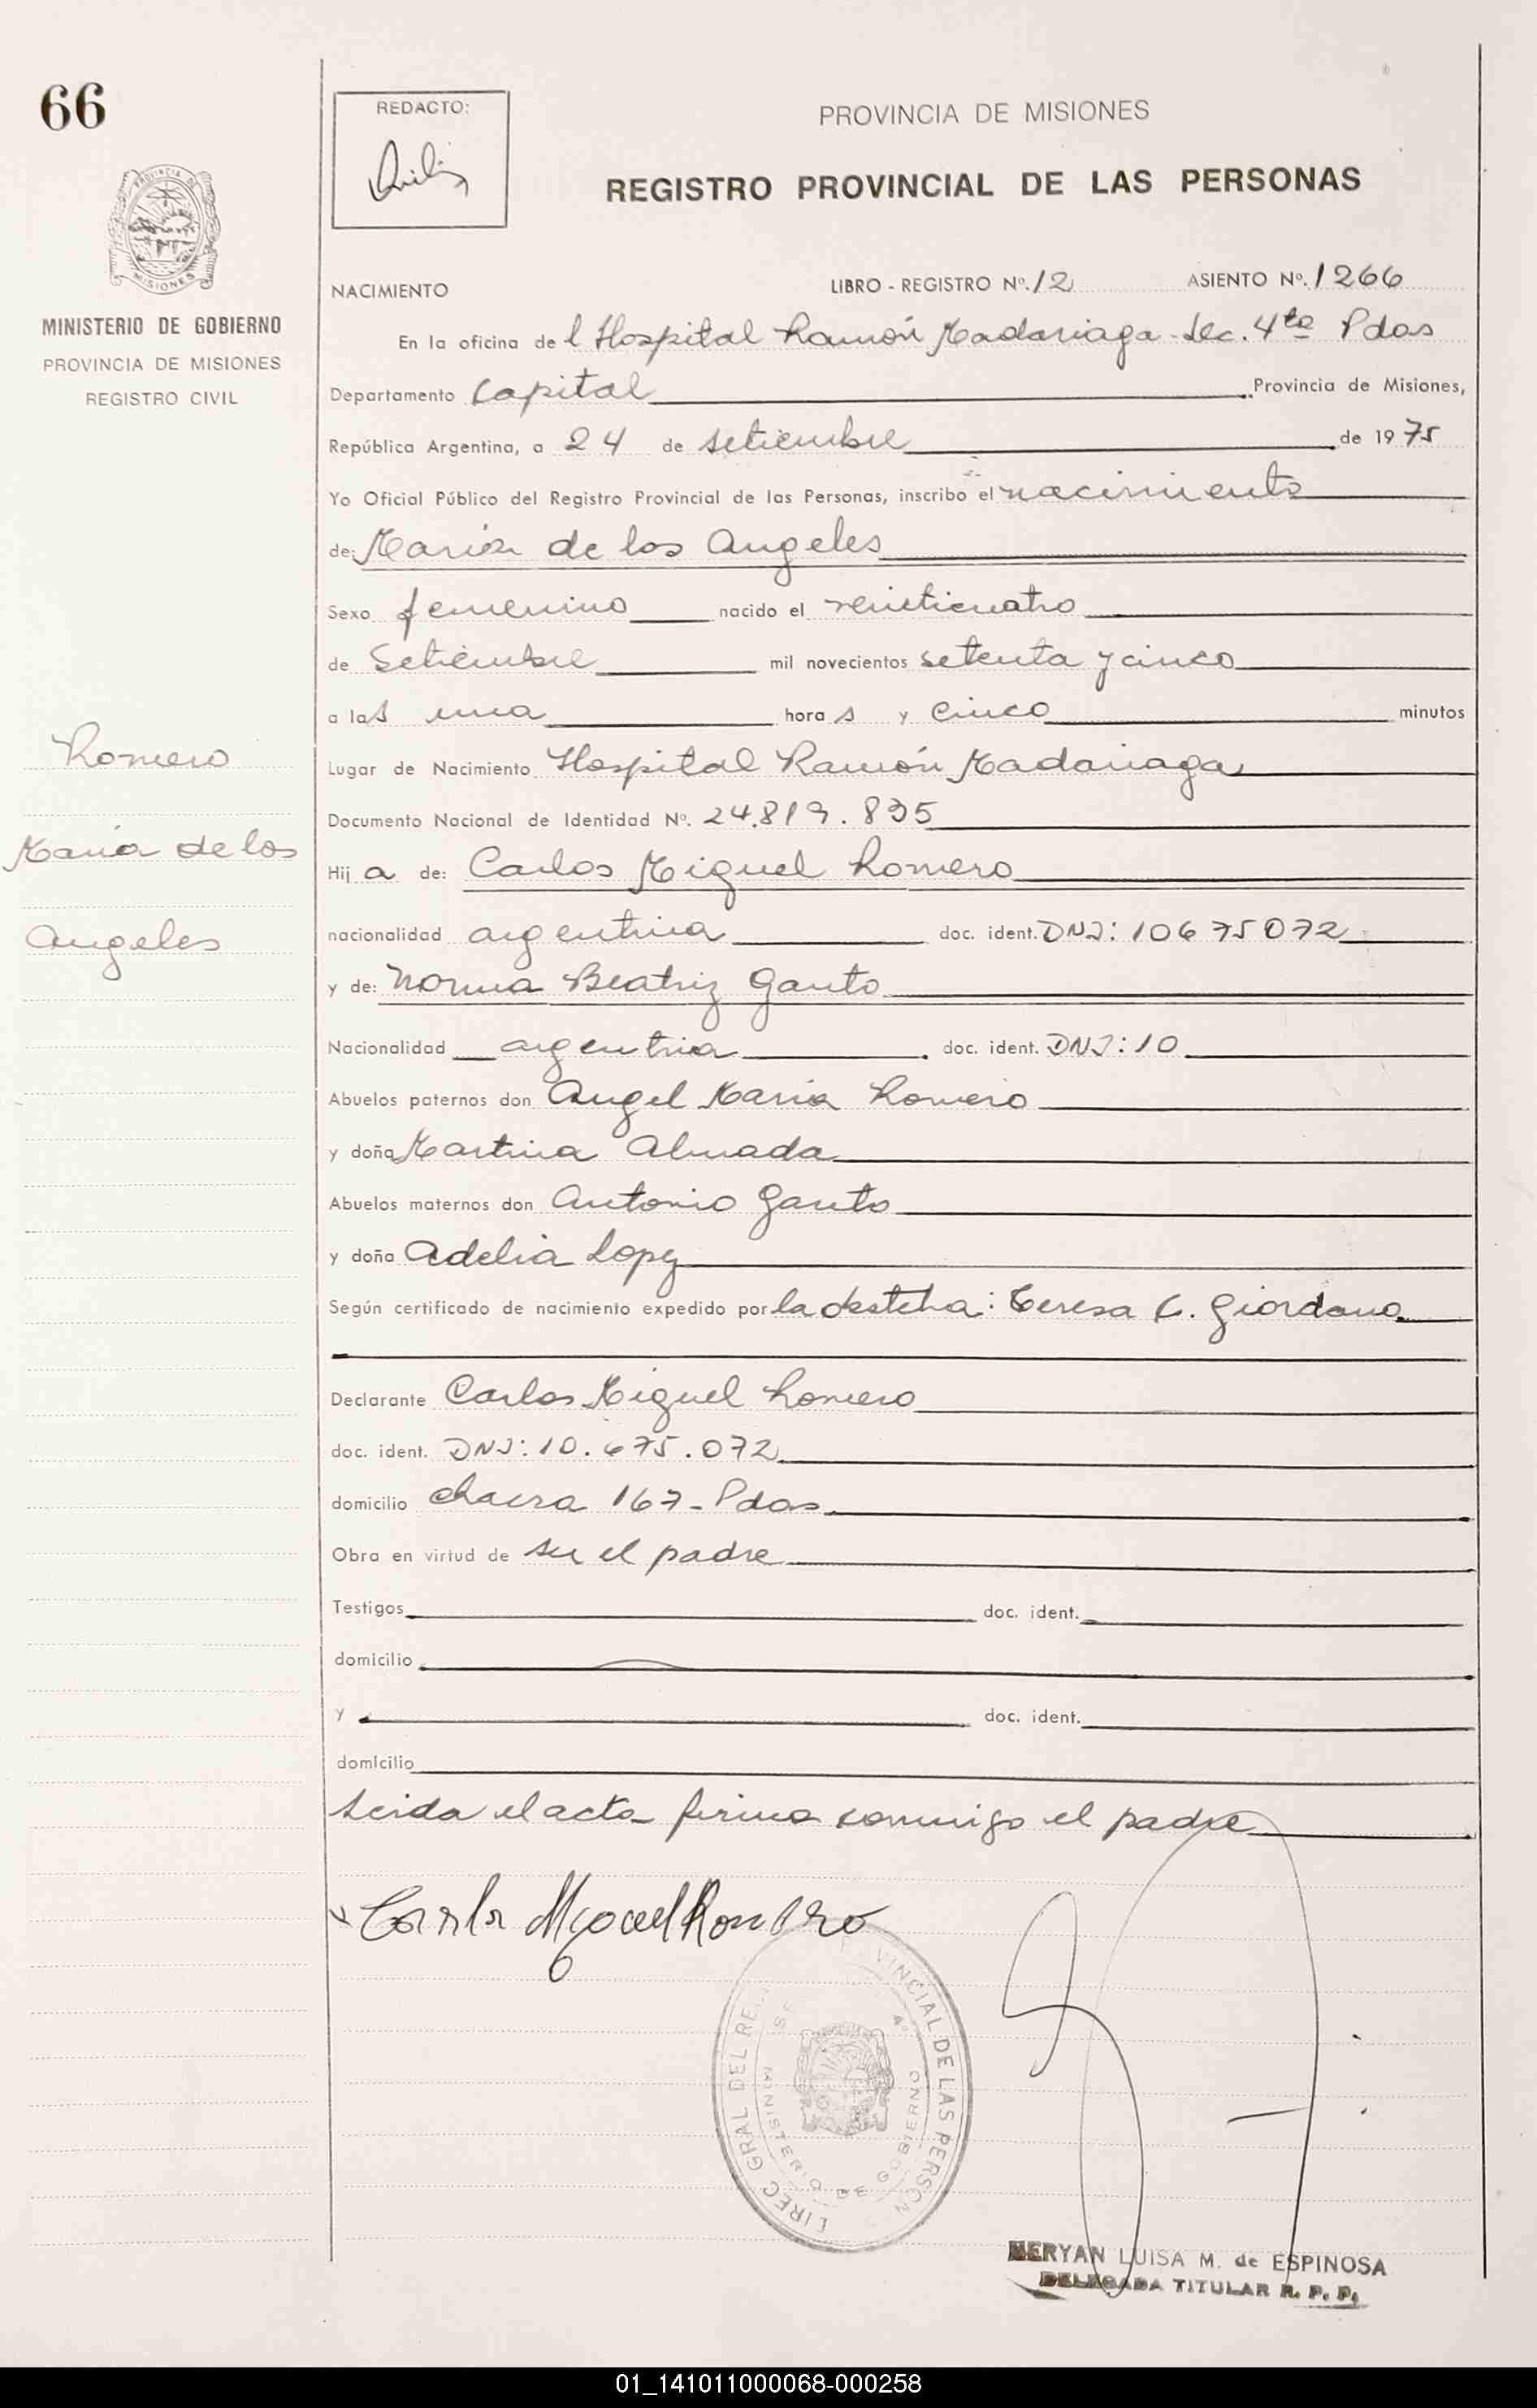 66
REDACTO:
PROVINCIA DE MISIONES
REGISTRO PROVINCIAL DE LAS PERSONAS
PROVINCIA DE
MISIONES
MINISTERIO DE GOBIERNO
PROVINCIA DE MISIONES
REGISTRO CIVIL
NACIMIENTO LIBRO - REGISTRO Nº. 12 ASIENTO Nº. 1266
En la oficina del Hospital Ramón Madariaga - Sec. 4ta Pdas
Departamento Capital Provincia de Misiones,
República Argentina, a 24 de setiembre de 1975
Yo Oficial Público del Registro Provincial de las Personas, inscribo el nacimiento
de: María de los Angeles
Sexo femenino nacido el veinticuatro
de Setiembre mil novecientos setenta y cinco
a las una horas y cinco minutos
Romero
María de los
Angeles
Lugar de Nacimiento Hospital Ramón Madariaga
Documento Nacional de Identidad Nº. 24.819.835
Hija de: Carlos Miguel Romero
nacionalidad argentina doc. ident. DNI: 10675072
y de: Norma Beatriz Gauto
Nacionalidad argentina doc. ident. DNI: 10
Abuelos paternos don Angel María Romero
y doña Martina Almada
Abuelos maternos don Antonio Gauto
y doña Adelia Lopez
Según certificado de nacimiento expedido por la obstetra: Teresa C. Giordano
Declarante Carlos Miguel Romero
doc. ident. DNI: 10.675.072
domicilio chacra 167 - Pdas
Obra en virtud de ser el padre
Testigos doc. ident.
domicilio
y doc. ident.
domicilio
Leida el acta firma conmigo el padre
Carlos Miguel Romero
DIREC GRAL DEL REG PROVINCIAL DE LAS PERSON
MINISTERIO DE GOBIERNO
MERYAN LUISA M. de ESPINOSA
DELEGADA TITULAR R. P. P.
01_141011000068-000258